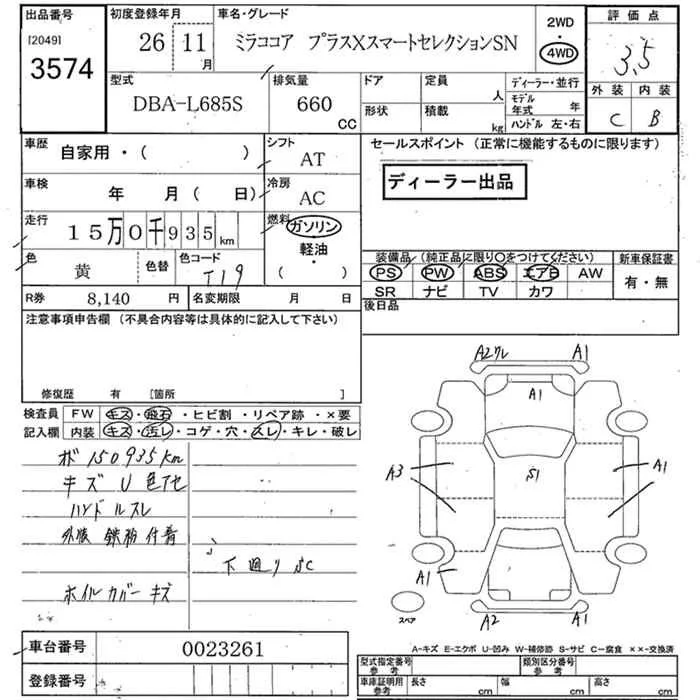 出品番号 初度登録年月 車名・グレード 2WD 評価点
[2049] 26 11 月 ミラココア プラスXスマートセレクションSN ・ 3.5
3574 4WD
型式 排気量 ドア 定員 人 ディーラー・並行 外装 内装
DBA-L685S 660 CC 形状 積載 kg モデル年式 年 C B
ハンドル 左・右
車歴 自家用・( ) シフト AT セールスポイント (正常に機能するものに限ります)
車検 年 月( 日) 冷房 AC ディーラー出品
走行 15万0千935km 燃料 ガソリン・
軽油・
( )
色 黄 色替 色コード T19 装備品 (純正品に限り○をつけてください) 新車保証書
PS PW ABS エアB AW 有・無
SR ナビ TV カワ
R券 8,140 円 名変期限 月 日 後日品
注意事項申告欄 (不具合内容等は具体的に記入して下さい)
修復歴 有 [箇所 ]
検査員 FW キズ・飛石・ヒビ割・リペア跡・×要
記入欄 内装 キズ・汚レ・コゲ・穴・スレ・キレ・破レ
ボ 150935km
キズ U 色アセ
ハンドルスレ
外後 鉄粉 付着
下廻り SC
ホイルカバー キズ
A2ワレ A1
A1
A3 S1 A1
A1
A2 A1
スペア
A-キズ E-エクボ U-凹み W-補修跡 S-サビ C-腐食 ××-交換済
車台番号 0023261
登録番号
型式指定番号 参考 類別区分番号 参考
車庫証明用 参考 長さ cm 幅 cm 高さ cm